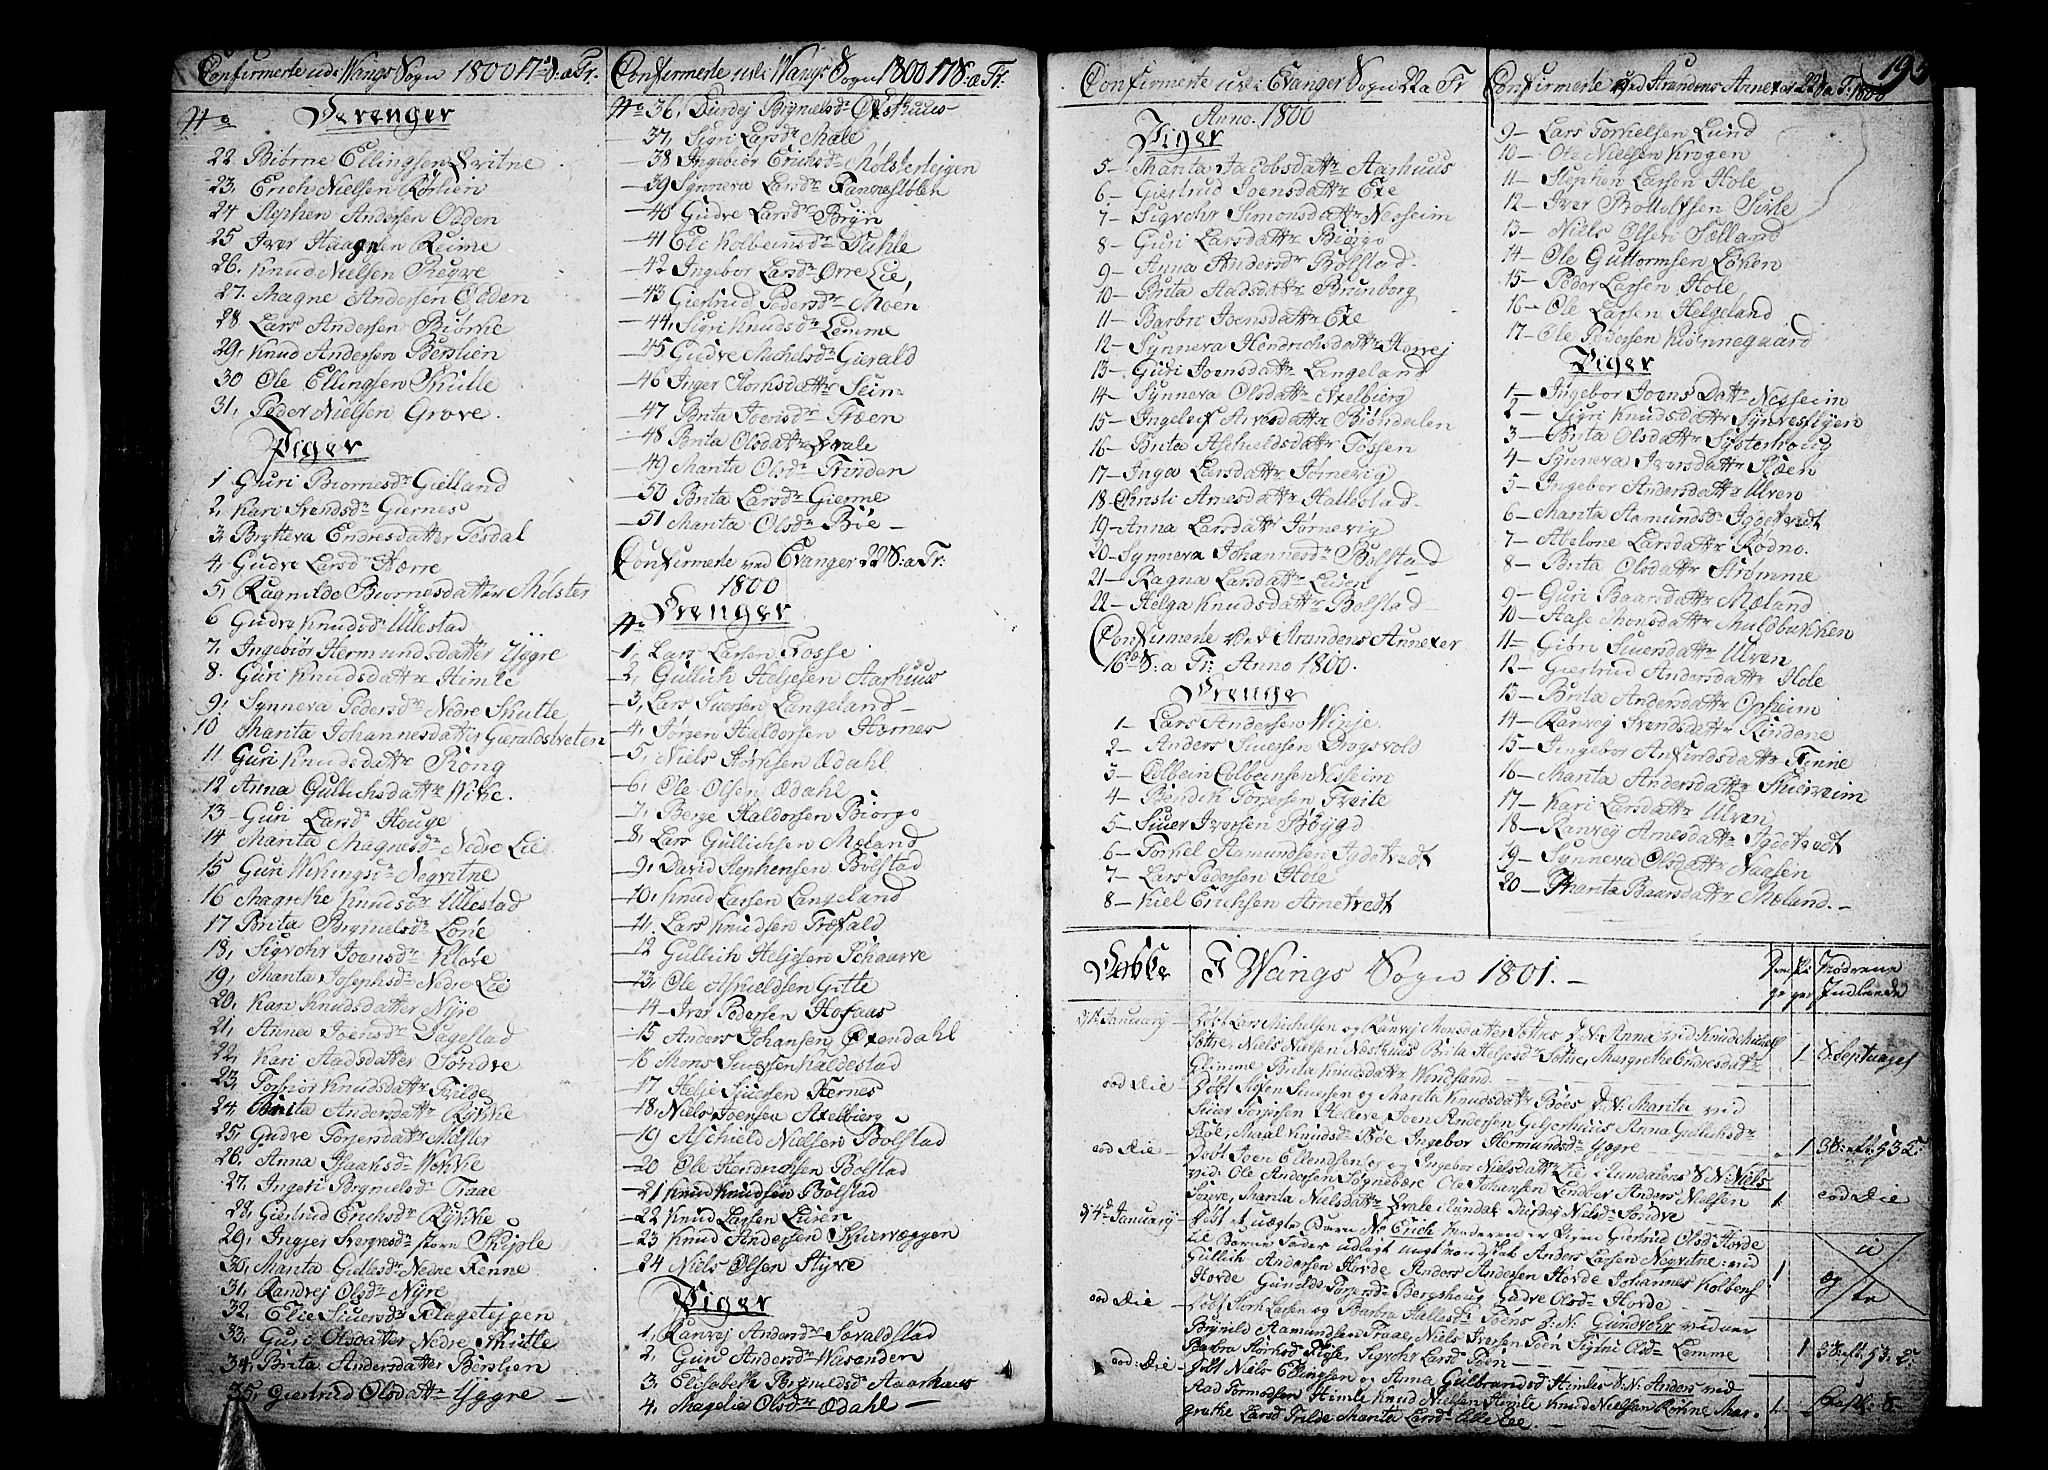 Confirmerte udi Wangs Sogn 1800 17de S: a Tr.
No Drenger
22 Biørne Ellingsen Qvitne
23, Erich Nielsen Rørlien
24 Stephen Andersen Odden
25 Iver Haagensen Reime
26. Knud Nielsen Regve
27. Magne Andersen Odden
28 Lars Andersen Biørke
29, Knud Andersen Berslien
30 Ole Ellingsen Skutle
31, Peder Nielsen Grove.
Piger
1 Guri Biørnesdr Gielland
2, Kari Svendsdr Giernes
3, Brytteva Endresdatter Tesdal
4, Gudve Larsdr Herre
5, Ragnilde Biørnesdatter Mølster
6 Gudve Knudsdr Ullestad
7, Ingebiør Hermundsdatter Ygre
8. Guri Knudsdattr Himle
9, Synneva Pedersdr Nedre Skutle
10 Marita Johannesdatter Gieraldstveten
11 Guri Knudsdattr Rong
12 Anna Gullichsdattr Wike.
13 Guri Larsdr Houge
14 Marita Magnesdr Nedre Lie
15 Guri Wikingsdr Negvitne
16 Magrethe Knudsdr Ullestad
17 Brita Brynielsdr Løne
18, Sigvohr Joensdr Kløve
19, Marita Josephsdr Nedre Lie
20, Kari Knudsdatter Nyre
21, Anna Joensdr Dagestad
22, Kari Aadsdatter Søndve
23, Torbiør Knudsdattr Tvilde
24, Brita Andersdattr Rykke
25, Gudve Torjersdattr Mølster
26. Anna Isaaksdr Wekke
27, Ingeri Brynielsdr Traae
28, Giertrud Erichsdr Rykke
29, Ingjer Svergesdr store Skiple
30, Marita Gullesdr Nedre Fenne
31, Randvej Olsdr Nyre
32, Elie Siversdr Flagetejgen
33, Guri Olsdatter Nedre Skutle
34, Brita Andersdatter Berslien
35, Giertrud Olsdattr Yggre
Confirmerte udi Wangs Sogn 1800 17 S: a Tr.
No 36, Durdej Brynielsdr
37, Sigri Larsdr Mæle
38 Ingebiør Erichsdr Mølstertejgen
39 Synneva Larsdr
40 Gudve Larsdr Bryn
41 Eli Kolbeinsdr Duhle
42, Ingebor Larsdr Øvre Lie,
43, Giertrud Pedersdr Moen
44, Sigri Knudsdr Lemme
45 Gudve Michelsdr Gierald
46 Inger Storksdattr Seim
47 Brita Joensdr Træen
48 Brita Olsdattr Qvale
49 Marita Olsdr Trinden
50 Brita Larsdr Gierme
51 Marita Olsdr Bøe
Confirmerte ved Evanger 22 S: a Tr:
1800
No Drenger
1, Lars Larsen Fosse
2, Gullich Helgesen Aarhuus
3, Lars Siversen Langeland
4, Jørgen Haldorsen Hernes
5, Niels Størksen Ædahl
6, Ole Olsen Ædahl
7, Berge Haldorsen Biørgo
8, Lars Gullichsen Moeland
9, David Stephensen Bolstad
10, Knud Larsen Langeland
11. Lars Knudsen Træfald
12 Gullich Heljesen Schaurve
13, Ole Askieldsen Gitle
14 Iver Pedersen Hofaas
15 Anders Johansen Øxendahl
16 Mons Siversen Kaldestad
17 Helje Siversen Hernes
18, Niels Joensen Axelbierg
19 Aschield Nielsen Bolstad
20 Ole Hendrichsen Bolstad
21 Knud Knudsen Bolstad
22 Knud Larsen Liren
23 Knud Andersen Skiervæggen
24 Niels Olsen Styve
Piger
1, Ranvej Andersdr Sævaldstad
2, Guri Andersdr Wasenden
3, Elisabeth Brynildsdr Aarhuus
4, Magela Olsdr Ædahl
Confirmerte udi Evanger Sogn 22 a Tr
Anno. 1800
Piger
5 Marita Jacobsdattr Aarhuus
6 Giertrud Joensdattr Exe
7 Sigvohr Simonsdattr Nesheim
8 Guri Larsdattr Biørgo
9 Anna Andersdr Bolstad
10 Brita Aadsdattr Brunborg
11 Barbri Joensdattr Exe
12 Synneva Hendrichsdattr Horvej
13 Guri Joensdattr Langeland
14 Synneva Olsdattr Axelbierg
15 Ingeleif Arvesdattr Biøndalen
16 Brita Aschieldsdattr Fossen
17 Inga Larsdattr Jørnevig
18 Christi Arnesdattr Hallestad
19 Anna Larsdattr Jørnevig
20 Synneva Johannesdr Bolstad
21 Ragna Larsdattr Liien
22 Helga Knudsdattr Bolstad
Confirmerte Ved Strandens Annexer
16de S: a Tr: Anno 1800.
Drenge
1 Lars Andersen Winje
2 Anders Siversen Drogsvold
3 Colbein Colbeinsen Nesheim
4 Bendik Torjersen Tveite
5 Siver Iversen Bøygd
6 Torkel Aamundsen Igdetvedt
7 Lars Pedersen Hole
8 Kiel Erichsen Arnetvedt
Confirmerte Ved Strandens Annexer 22 S. a T. 1800
195
9 Lars Torkielsen Lund
10 Ole Nielsen Krogen
11 Stephen Larsen Hole
12 Iver Bottolvsen Sivle
13 Niels Olsen Sælland
14 Ole Guttormsen Løken
15 Peder Larsen Hole
16 Ole Larsen Helgeland
17 Ole Pedersen Kiønnegaard
Piger
1 Ingebor Joens Dattr Nesheim
2 Sigri Knudsdattr Synvestlyen
3 Brita Olsdattr Systerhoug
4 Synneva Iversdattr Støen
5 Ingebor Andersdattr Ulven
6 Marita Aamundsdr Igdetvedt
7 Abelone Larsdattr Rodno.
8 Brita Olsdattr Strømme
9 Guri Baarsdattr Mæland
10 Aase Monsdattr Muldbakken
11 Giøn Siversdattr Ulven
12 Giertrud Andersdattr Hole
13 Brita Andersdattr Opheim
14 Ranvej Svendsdattr Rindene
15 Ingebor Ankindsdattr Finne
16 Marita Andersdattr Skierveim
17 Kari Larsdattr Ulven
18 Ranvej Arnesdattr Igdetvedt
19 Synneva Olsdattr Naasen
20 Marita Baarsdattr Mæland.
Døbte I Wangs Sogn 1801.
Mødrene Indleede
d 1te January Døbt Lars Michelsen og Ranvej Monsdatter Sættres d: N: Anna ved Knud Michels
Sættre, Niels Nielsen Nesthuus Brita Heljesdr Sættre, Margrethe Endresdattr
Glimme Brita Knudsdattr Windsand. 1 S. Septuages
eod Die Døbt Stephen Siversen og Marita Knudsdattr Bøes d: N: Marita ved
Siver Torjersen Helleve Joen Andersen Giljerhuus Anna Gullichsdr
Bøe, Maal Knudsdr Bøe Ingebor Hermundsdr Yggre 1
eod Die Døbt Joen Ellendsen og Ingebor Nielsdattr Lie i Rundalens d: N: Niels
ved Ole Andersen Sognebære Ole Johansen Lindber Anders Nielsen
Sauve, Marita Nielsdattr Qvale Rundal Durdej Nielsdr Søndve 1 eod Die
d 4de January Døbt et uægte Barn No Erich Moderen er Pigen Giertrud Olsdr Horde
til Barne Fader udlagt ungkarl Anders Larsen Negvitne: ved
Gullich Andersen Horde Anders Andersen Horde Johannes Kolbens
Horde Gunilde Torjersdr Bergshoug Gudve Olsdr Horde 1 u æg te
eod Die Døbt Størk Larsen og Barbra Hallesdr Føens d: N: Gundvohr ved
Brynild Aamundsen Traae, Niels Iversen Føen Sigvi Olsdr Lemme
Barbra Størksdr Røise Sigvohr Larsdr Føen 1
eod: Die Døbt Niels Ellingsen og Anna Gulbrandsd Himles d: N: Anders ved
Aad Tormodsen Himle Knud Nielsen Himle Knud Nielsen Rokne Mar-
grethe Larsd Tvilde Marita Larsdr Lille Lie. 1